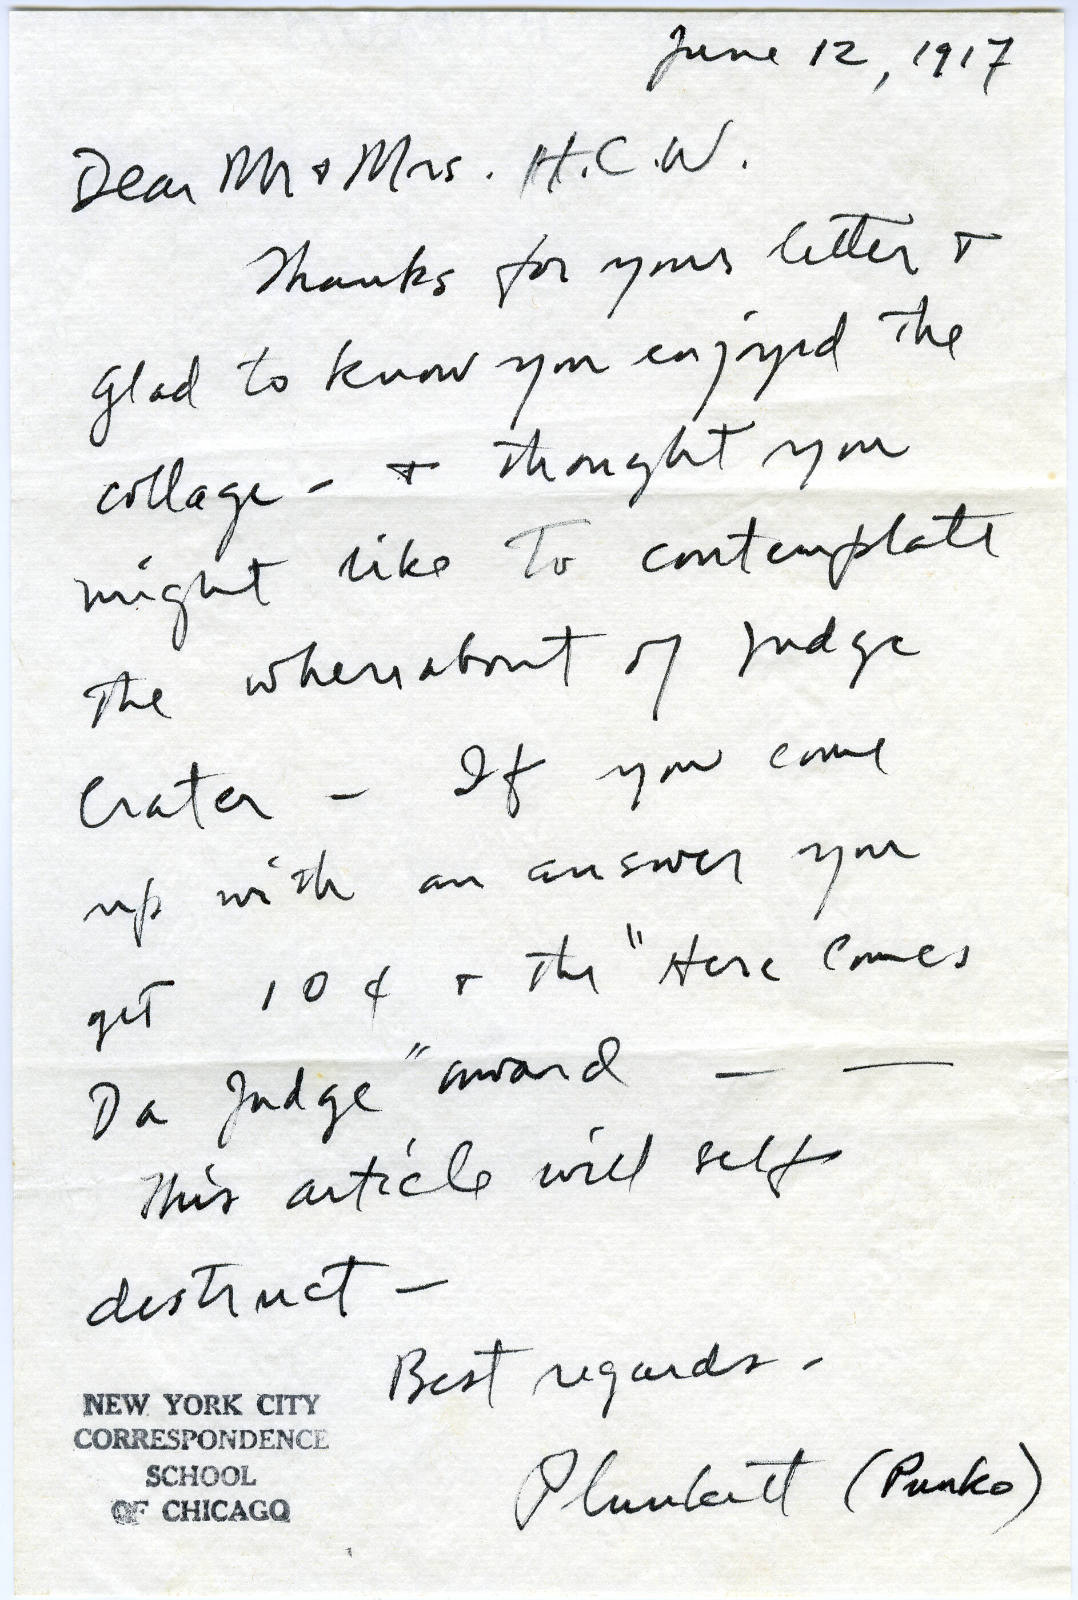 June 12, 1917
Dear Mr & Mrs. H.C.W.
Thanks for your letter &
glad to know you enjoyed the
collage - & thought you
might like to contemplate
the whereabout of Judge
Crater - If you come
up with an answer you
get 10¢ & the "Here Comes
Da Judge" award - —
This article will self
destruct -
Best regards -
Plunkett (Punko)
NEW YORK CITY
CORRESPONDENCE
SCHOOL
OF CHICAGO